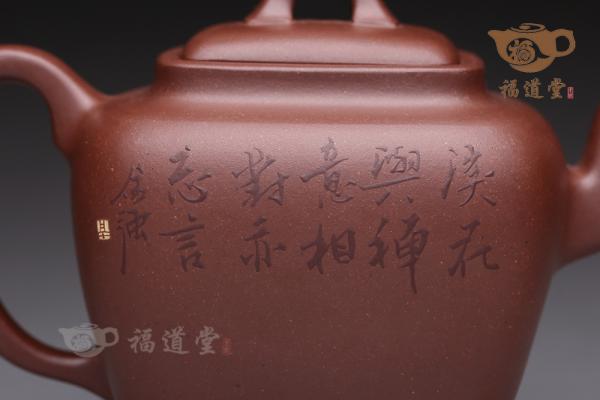 福道堂
溪花
與禪
意相
對亦
忘言
福道堂